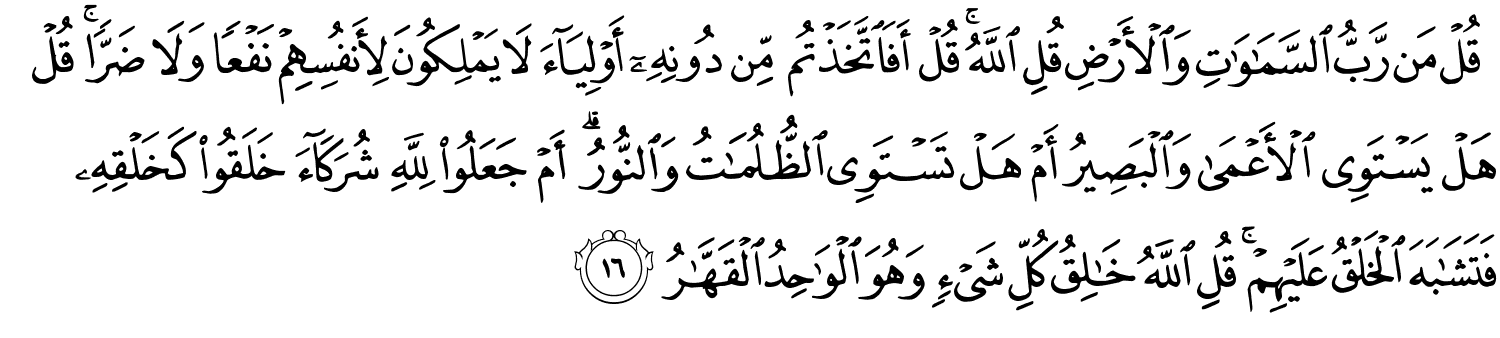 قُلۡ مَن رَّبُّ ٱلسَّمَٰوَٰتِ وَٱلۡأَرۡضِ قُلِ ٱللَّهُۚ قُلۡ أَفَٱتَّخَذۡتُم مِّن دُونِهِۦٓ أَوۡلِيَآءَ لَا يَمۡلِكُونَ لِأَنفُسِهِمۡ نَفۡعٗا وَلَا ضَرّٗاۚ قُلۡ
هَلۡ يَسۡتَوِي ٱلۡأَعۡمَىٰ وَٱلۡبَصِيرُ أَمۡ هَلۡ تَسۡتَوِي ٱلظُّلُمَٰتُ وَٱلنُّورُۗ أَمۡ جَعَلُواْ لِلَّهِ شُرَكَآءَ خَلَقُواْ كَخَلۡقِهِۦ
فَتَشَٰبَهَ ٱلۡخَلۡقُ عَلَيۡهِمۡۚ قُلِ ٱللَّهُ خَٰلِقُ كُلِّ شَيۡءٖ وَهُوَ ٱلۡوَٰحِدُ ٱلۡقَهَّٰرُ ١٦